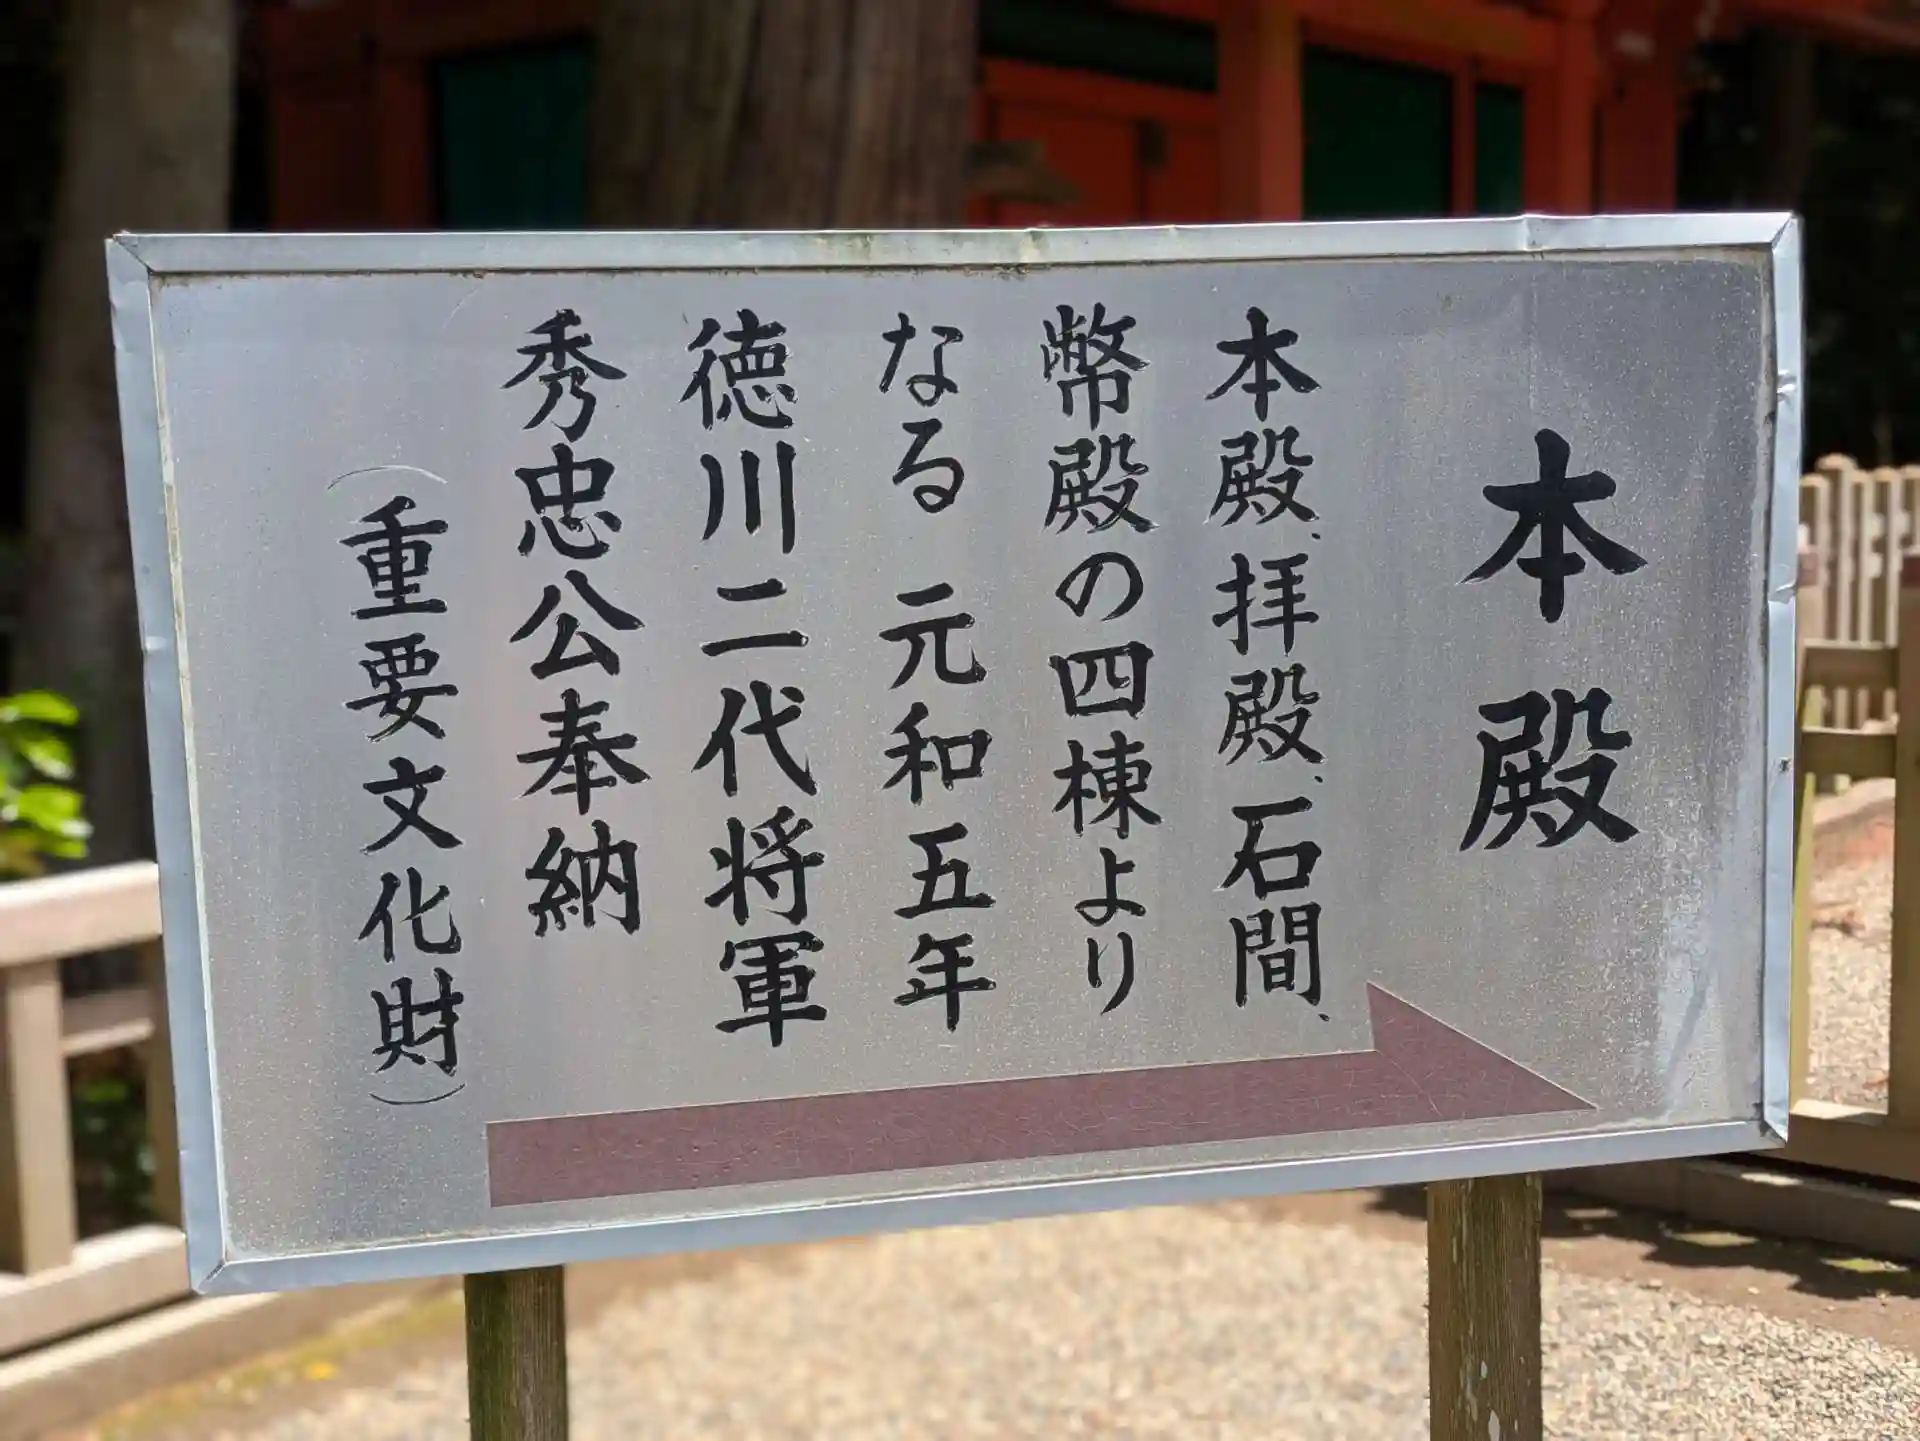 本殿
本殿、拝殿、石間、
幣殿の四棟より
なる 元和五年
徳川二代将軍
秀忠公奉納
（重要文化財）